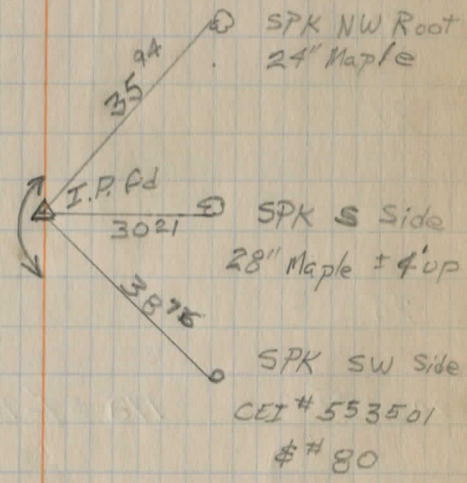 SPK NW Root
24" Maple
35 94
I.P. fd
30 21
SPK S Side
28" Maple ± 4' up
SPK SW Side
CEI # 553501
& # 80